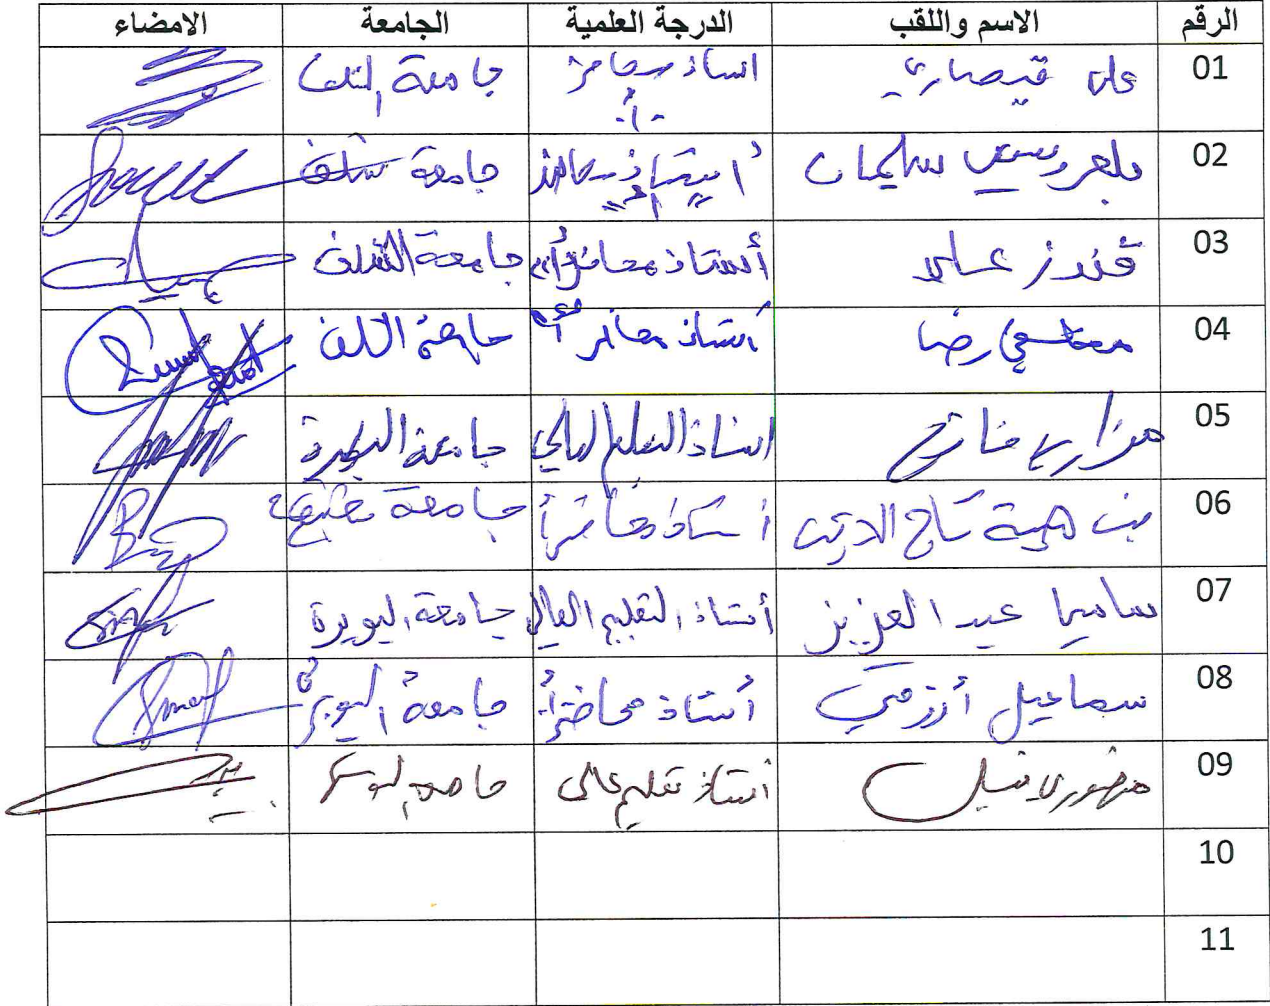 الرقم الاسم واللقب الدرجة العلمية الجامعة الامضاء
01 علي قيصاري استاذ محاضر جامعة الشلف
-أ-
02 بلعروسي سليمان أستاذ محاضر جامعة شلف
03 قندز علي أستاذ محاضر "أ" جامعة الشلف
04 رضا أستاذ محاضر "أ" جامعة الشلف
05 مزاري فاتح استاذ التعليم العالي جامعة البويرة
06 تاج الدين أستاذ محاضر أ جامعة
07 ساسي عبد العزيز أستاذ التعليم العالي جامعة البويرة
08 سماعيل أستاذ محاضر أ جامعة البويرة
09 منصوري نبيل أستاذ تعليم عالي جامعة البويرة
10
11